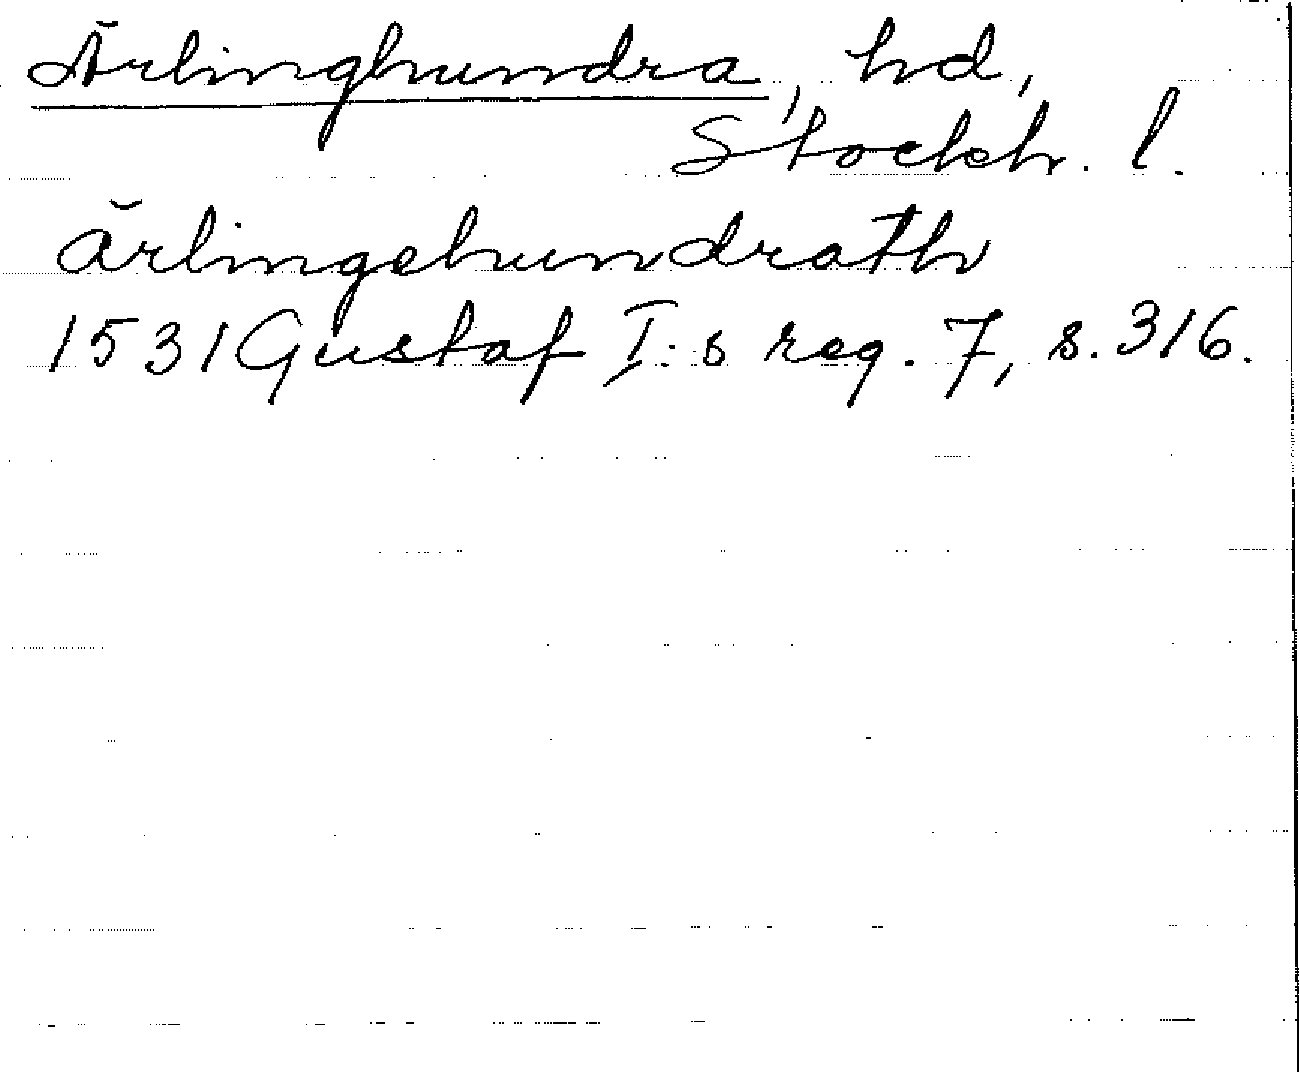 Ärlinghundra, hd,
Stockh. l.
ärlingehundrath
1531 Gustaf I:s reg. 7, s. 316.